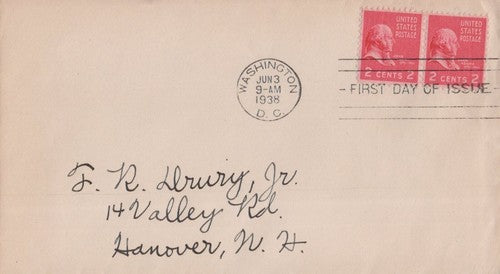 UNITED
STATES
POSTAGE
2 CENTS 2
UNITED
STATES
POSTAGE
2 CENTS 2
WASHINGTON
JUN 3
9-AM
1938
D. C.
- FIRST DAY OF ISSUE -
F. R. Drury, Jr.
14 Valley Rd.
Hanover, N. H.